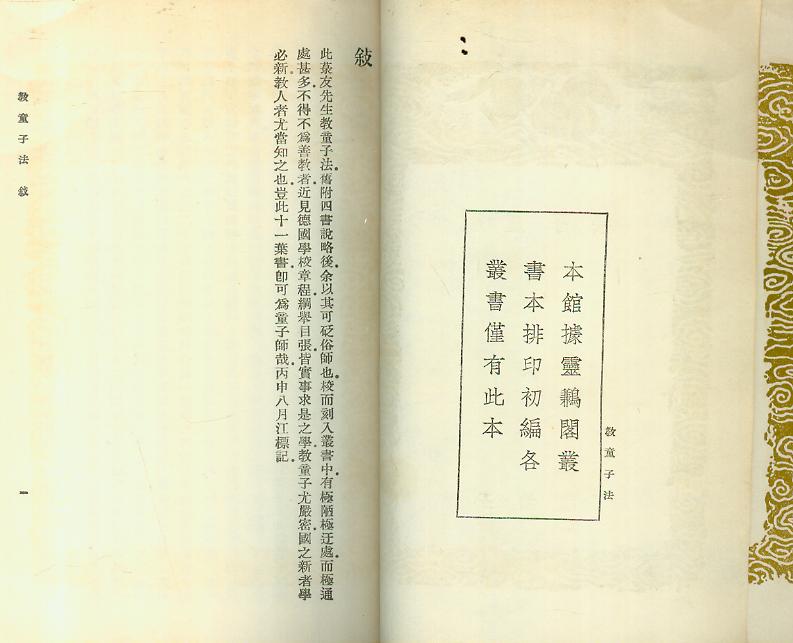 本館據靈鶼閣叢
書本排印初編各
叢書僅有此本
教童子法
敍
此菉友先生教童子法。舊附四書說略後。余以其可砭俗師也。校而刻入叢書中。有極陋極迂處。而極通
處甚多。不得不爲善教者。近見德國學校章程。綱舉目張。皆實事求是之學。教童子尤嚴密。國之新者學
必新。教人者尤當知之也。豈此十一葉書。卽可爲童子師哉。丙申八月江標記。
教童子法 敍
一